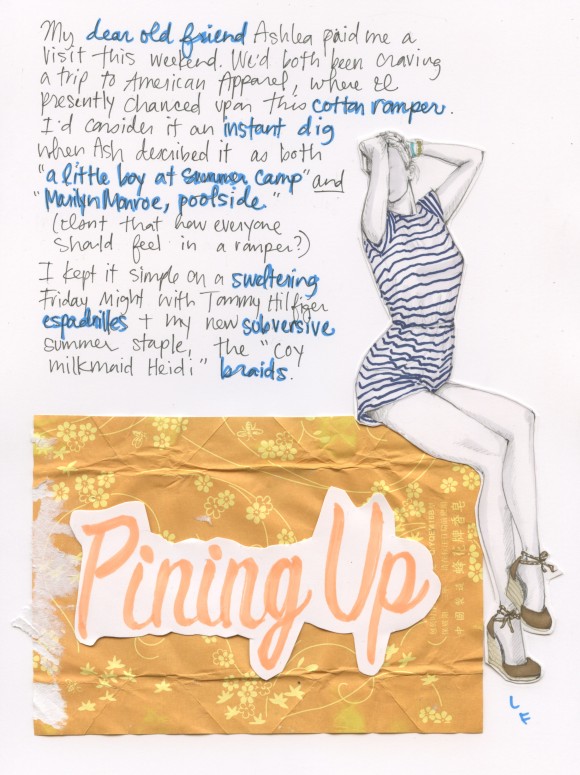 My dear old friend Ashlea paid me a
visit this weekend. We'd both been craving
a trip to American Apparel, where I
presently chanced upon this cotton romper.
I'd consider it an instant dig
when Ash described it as both
"a little boy at summer camp" and
"Marilyn Monroe, poolside."
(Isn't that how everyone
should feel in a romper?)
I kept it simple on a sweltering
Friday night with Tommy Hilfiger
espadrilles + my new subversive
summer staple, the "coy
milkmaid Heidi" braids.
Pining Up
中國製造
蜂花牌香皂
LF